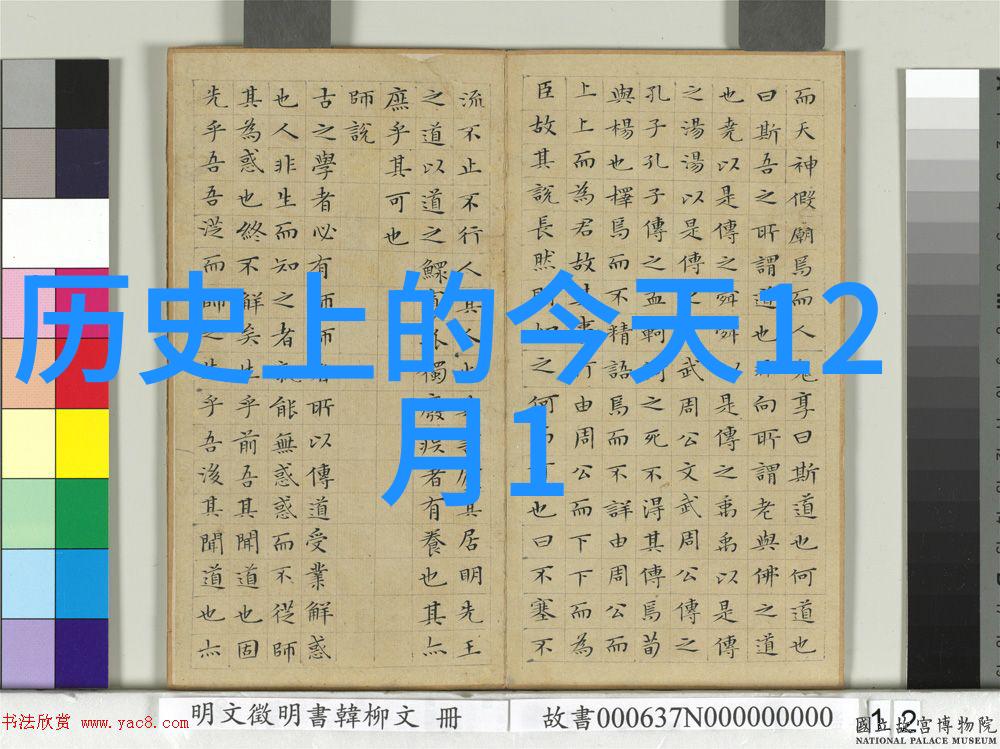 历史上的今天12
月1
而天神假廟焉而人鬼享曰斯道也何道也
曰斯吾之所謂道也非向所謂老與佛之道
也堯以是傳之舜舜以是傳之禹禹以是傳
之湯湯以是傳之武周公文武周公傳之
孔子孔子傳之孟軻軻之死不得其傳焉荀
與楊也擇焉而不精語焉而不詳由周公而
上上而為君故其事行由周公而下下而為
臣故其說長然則如之何而可也曰不塞不
流不止不行人其人火其居明先王
之道以道之鰥寡孤獨廢疾者有養也其亦
庶乎其可也
師說
古之學者必有師師者所以傳道受業解惑
也人非生而知之者孰能無惑惑而不從師
其為惑也終不解矣生乎前吾其聞道也固
先乎吾吾從而師之生乎吾後其聞道也亦
明文徵明書韓柳文 冊
故書000637N000000000
12
书法欣赏 www.yac8.com
國立故宮博物院
NATIONAL PALACE MUSEUM